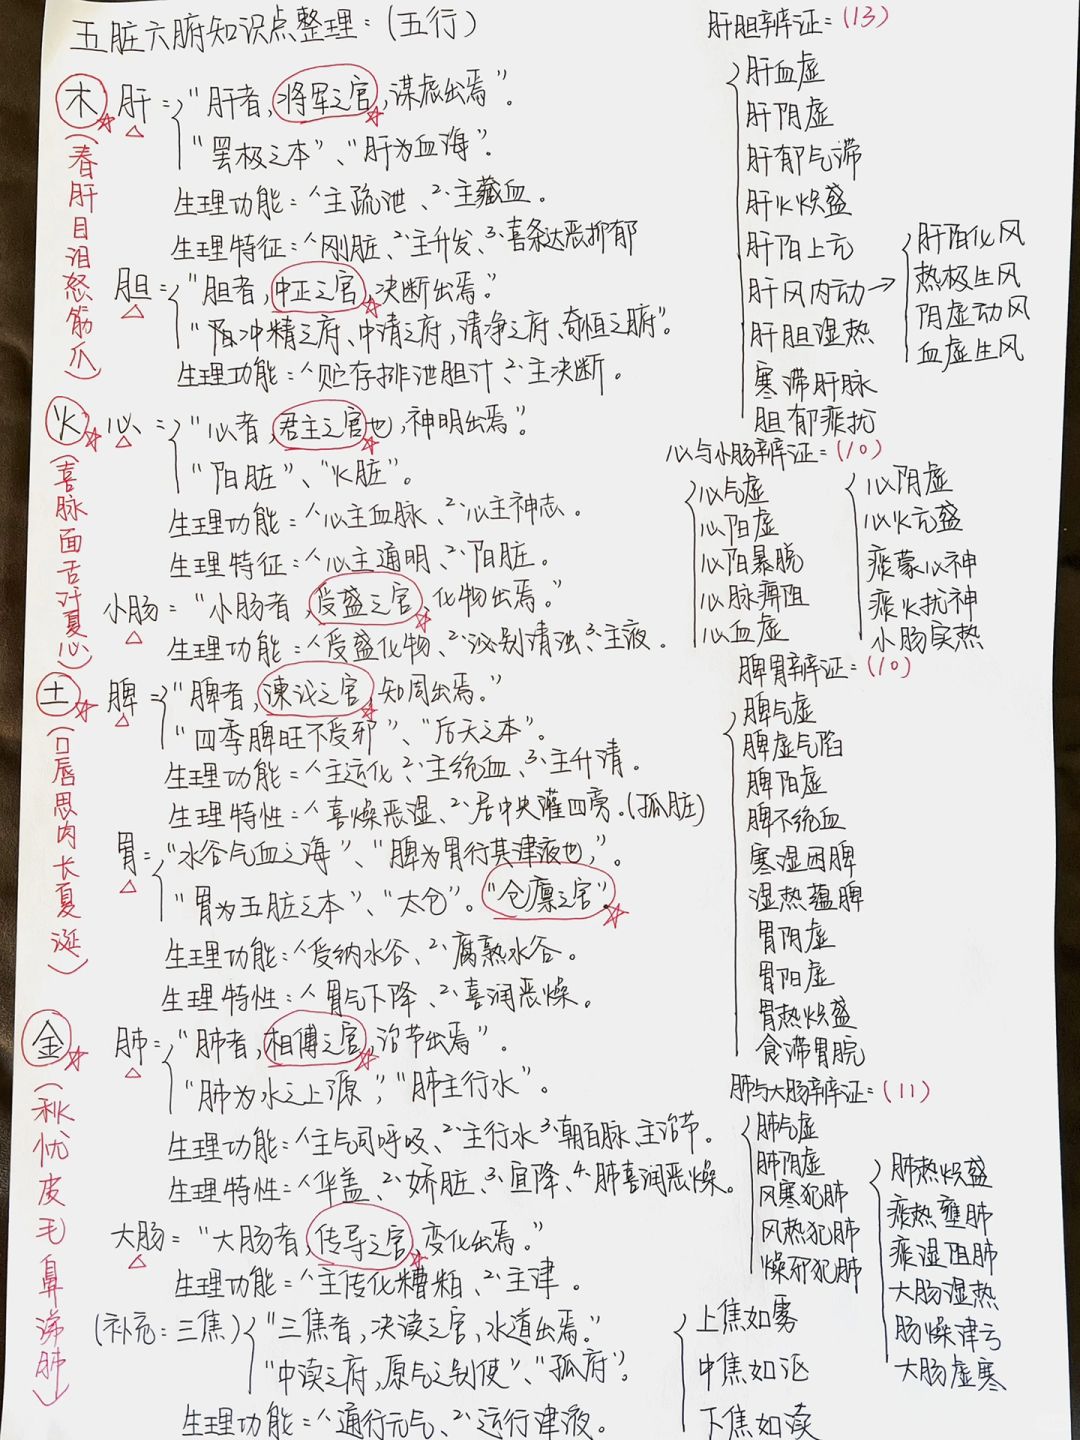 五脏六腑知识点整理：（五行）
木 肝：“肝者，将军之官，谋虑出焉”。
“罢极之本”、“肝为血海”。
生理功能：1、主疏泄、2、主藏血。
生理特征：1、刚脏、2、主升发、3、喜条达恶抑郁
胆：“胆者，中正之官，决断出焉。”
“阳冲精之府、中清之府，清净之府、奇恒之腑”。
生理功能：1、贮存排泄胆汁、2、主决断。
（春肝目泪怒筋爪）
火 心：“心者，君主之官也，神明出焉”。
“阳脏”、“火脏”。
生理功能：1、心主血脉、2、心主神志。
生理特征：1、心主通明、2、阳脏。
小肠：“小肠者，受盛之官，化物出焉。”
生理功能：1、受盛化物、2、泌别清浊、3、主液。
（喜脉面舌汗夏心）
土 脾：“脾者，谏议之官，知周出焉。”
“四季脾旺不受邪”、“后天之本”。
生理功能：1、主运化、2、主统血、3、主升清。
生理特性：1、喜燥恶湿、2、居中央灌四旁。（孤脏）
胃：“水谷气血之海”、“脾为胃行其津液也，”。
“胃为五脏之本”、“太仓”。“仓廪之官”。
生理功能：1、受纳水谷、2、腐熟水谷。
生理特性：1、胃气下降、2、喜润恶燥。
（口唇思肉长夏涎）
金 肺：“肺者，相傅之官，治节出焉”。
“肺为水之上源”，“肺主行水”。
生理功能：1、主气司呼吸、2、主行水3、朝百脉、主治节。
生理特性：1、华盖、2、娇脏、3、宣降、4、肺喜润恶燥。
大肠：“大肠者，传导之官，变化出焉。”
生理功能：1、主传化糟粕、2、主津。
（秋忧皮毛鼻涕肺）
（补充：三焦）“三焦者，决渎之官，水道出焉。”
“中渎之府，原气之别使”、“孤府”。
生理功能：1、通行元气、2、运行津液。
上焦如雾
中焦如沤
下焦如渎
肝胆辨证：（13）
肝血虚
肝阴虚
肝郁气滞
肝火炽盛
肝阳上亢
肝风内动→
肝阳化风
热极生风
阴虚动风
血虚生风
肝胆湿热
寒滞肝脉
胆郁痰扰
心与小肠辨证：（10）
心气虚
心阳虚
心阳暴脱
心脉痹阻
心血虚
心阴虚
心火亢盛
痰蒙心神
痰火扰神
小肠实热
脾胃辨证：（10）
脾气虚
脾虚气陷
脾阳虚
脾不统血
寒湿困脾
湿热蕴脾
胃阴虚
胃阳虚
胃热炽盛
食滞胃脘
肺与大肠辨证：（11）
肺气虚
肺阴虚
风寒犯肺
风热犯肺
燥邪犯肺
肺热炽盛
痰热壅肺
痰湿阻肺
大肠湿热
肠燥津亏
大肠虚寒